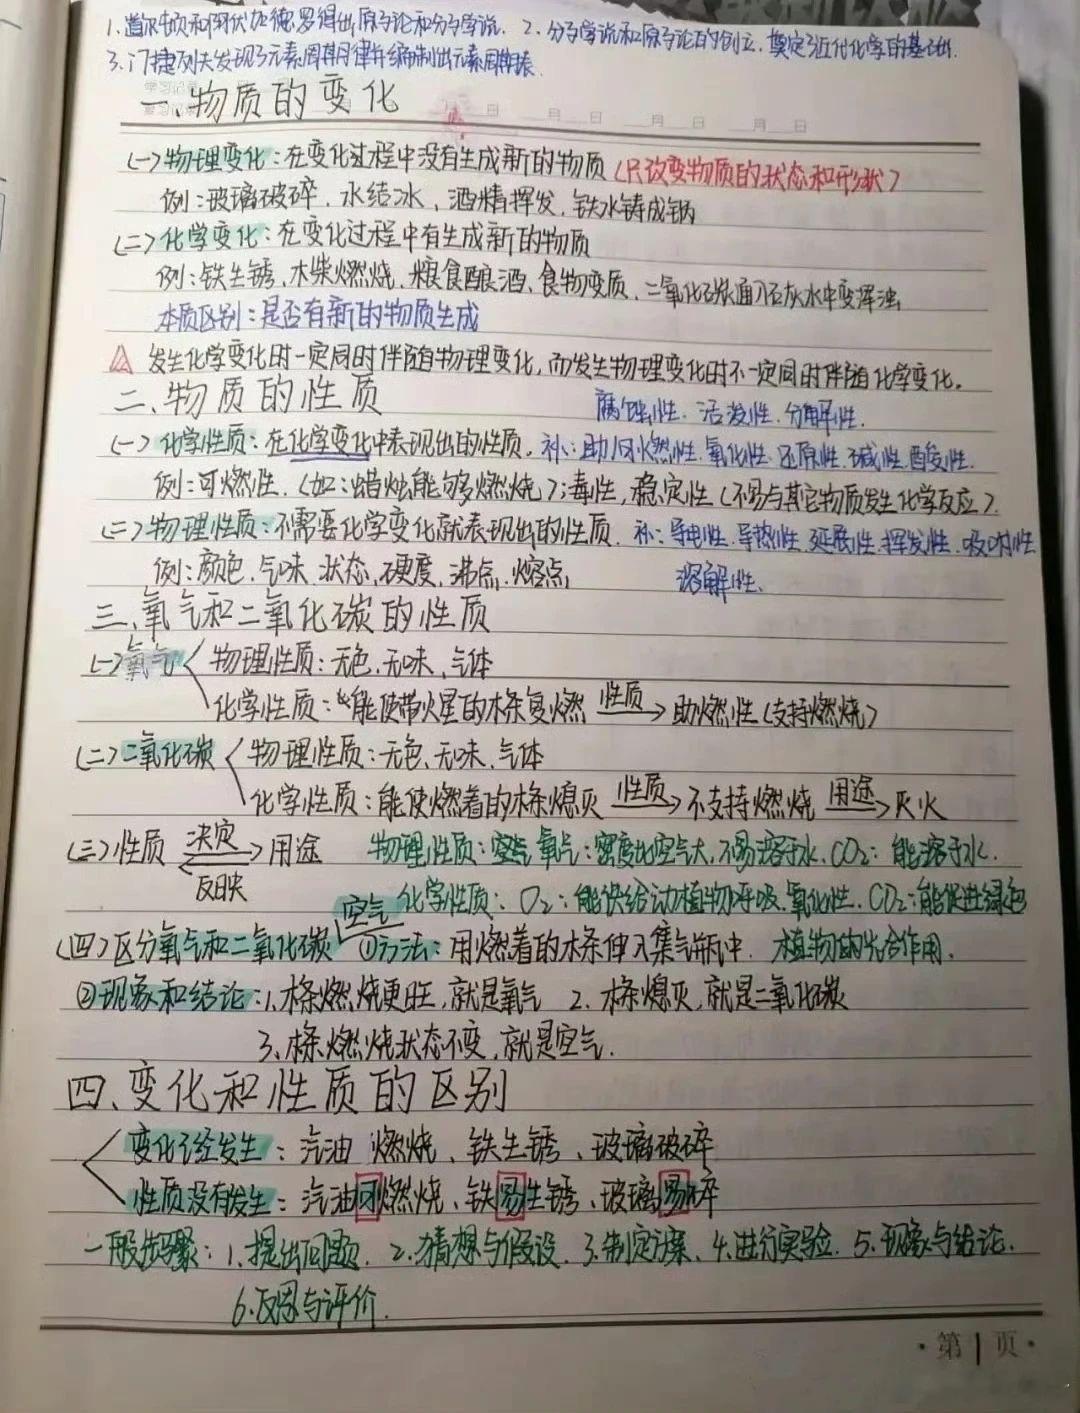 1.道尔顿和阿伏加德罗得出原子论和分子学说. 2.分子学说和原子论的创立,奠定了近代化学的基础.
3.门捷列夫发现了元素周期律并编制出元素周期表.
一.物质的变化
月 日 月 日 月 日
(一)物理变化:在变化过程中没有生成新的物质(只改变物质的状态和形状)
例:玻璃破碎.水结冰,酒精挥发.铁水铸成锅
(二)化学变化:在变化过程中有生成新的物质
例:铁生锈、木柴燃烧.粮食酿酒、食物变质、二氧化碳通入石灰水中变浑浊
本质区别:是否有新的物质生成
发生化学变化时一定同时伴随物理变化,而发生物理变化时不一定同时伴随化学变化.
二、物质的性质
腐蚀性.活泼性.分解性.
(一)化学性质:在化学变化中表现出的性质.补:助(可)燃性.氧化性.还原性.碱性.酸性.
例:可燃性.(如:蜡烛能够燃烧);毒性,稳定性(不易与其它物质发生化学反应).
(二)物理性质:不需要化学变化就表现出的性质.补:导电性.导热性.延展性.挥发性.吸附性
例:颜色.气味.状态,硬度,沸点,熔点, 溶解性.
三.氧气和二氧化碳的性质
(一)氧气 物理性质:无色.无味.气体
化学性质:能使带火星的木条复燃 性质→助燃性(支持燃烧)
(二)二氧化碳 物理性质:无色.无味.气体
化学性质:能使燃着的木条熄灭 性质→不支持燃烧 用途→灭火
(三)性质 决定→用途 物理性质: 氧气:密度比空气大,不易溶于水.CO₂:能溶于水.
反映 空气 化学性质:O₂:能供给动植物呼吸.氧化性.CO₂:能促进绿色
(四)区分氧气和二氧化碳 ①方法:用燃着的木条伸入集气瓶中. 植物的光合作用.
②现象和结论:1.木条燃烧更旺,就是氧气 2.木条熄灭,就是二氧化碳
3、木条燃烧状态不变,就是空气.
四、变化和性质的区别
变化已经发生:汽油 燃烧、铁生锈、玻璃破碎
性质没有发生:汽油可燃烧、铁易生锈、玻璃易碎
一般步骤:1.提出问题.2.猜想与假设.3.制定方案.4.进行实验.5.现象与结论.
6.反思与评价.
·第1页·